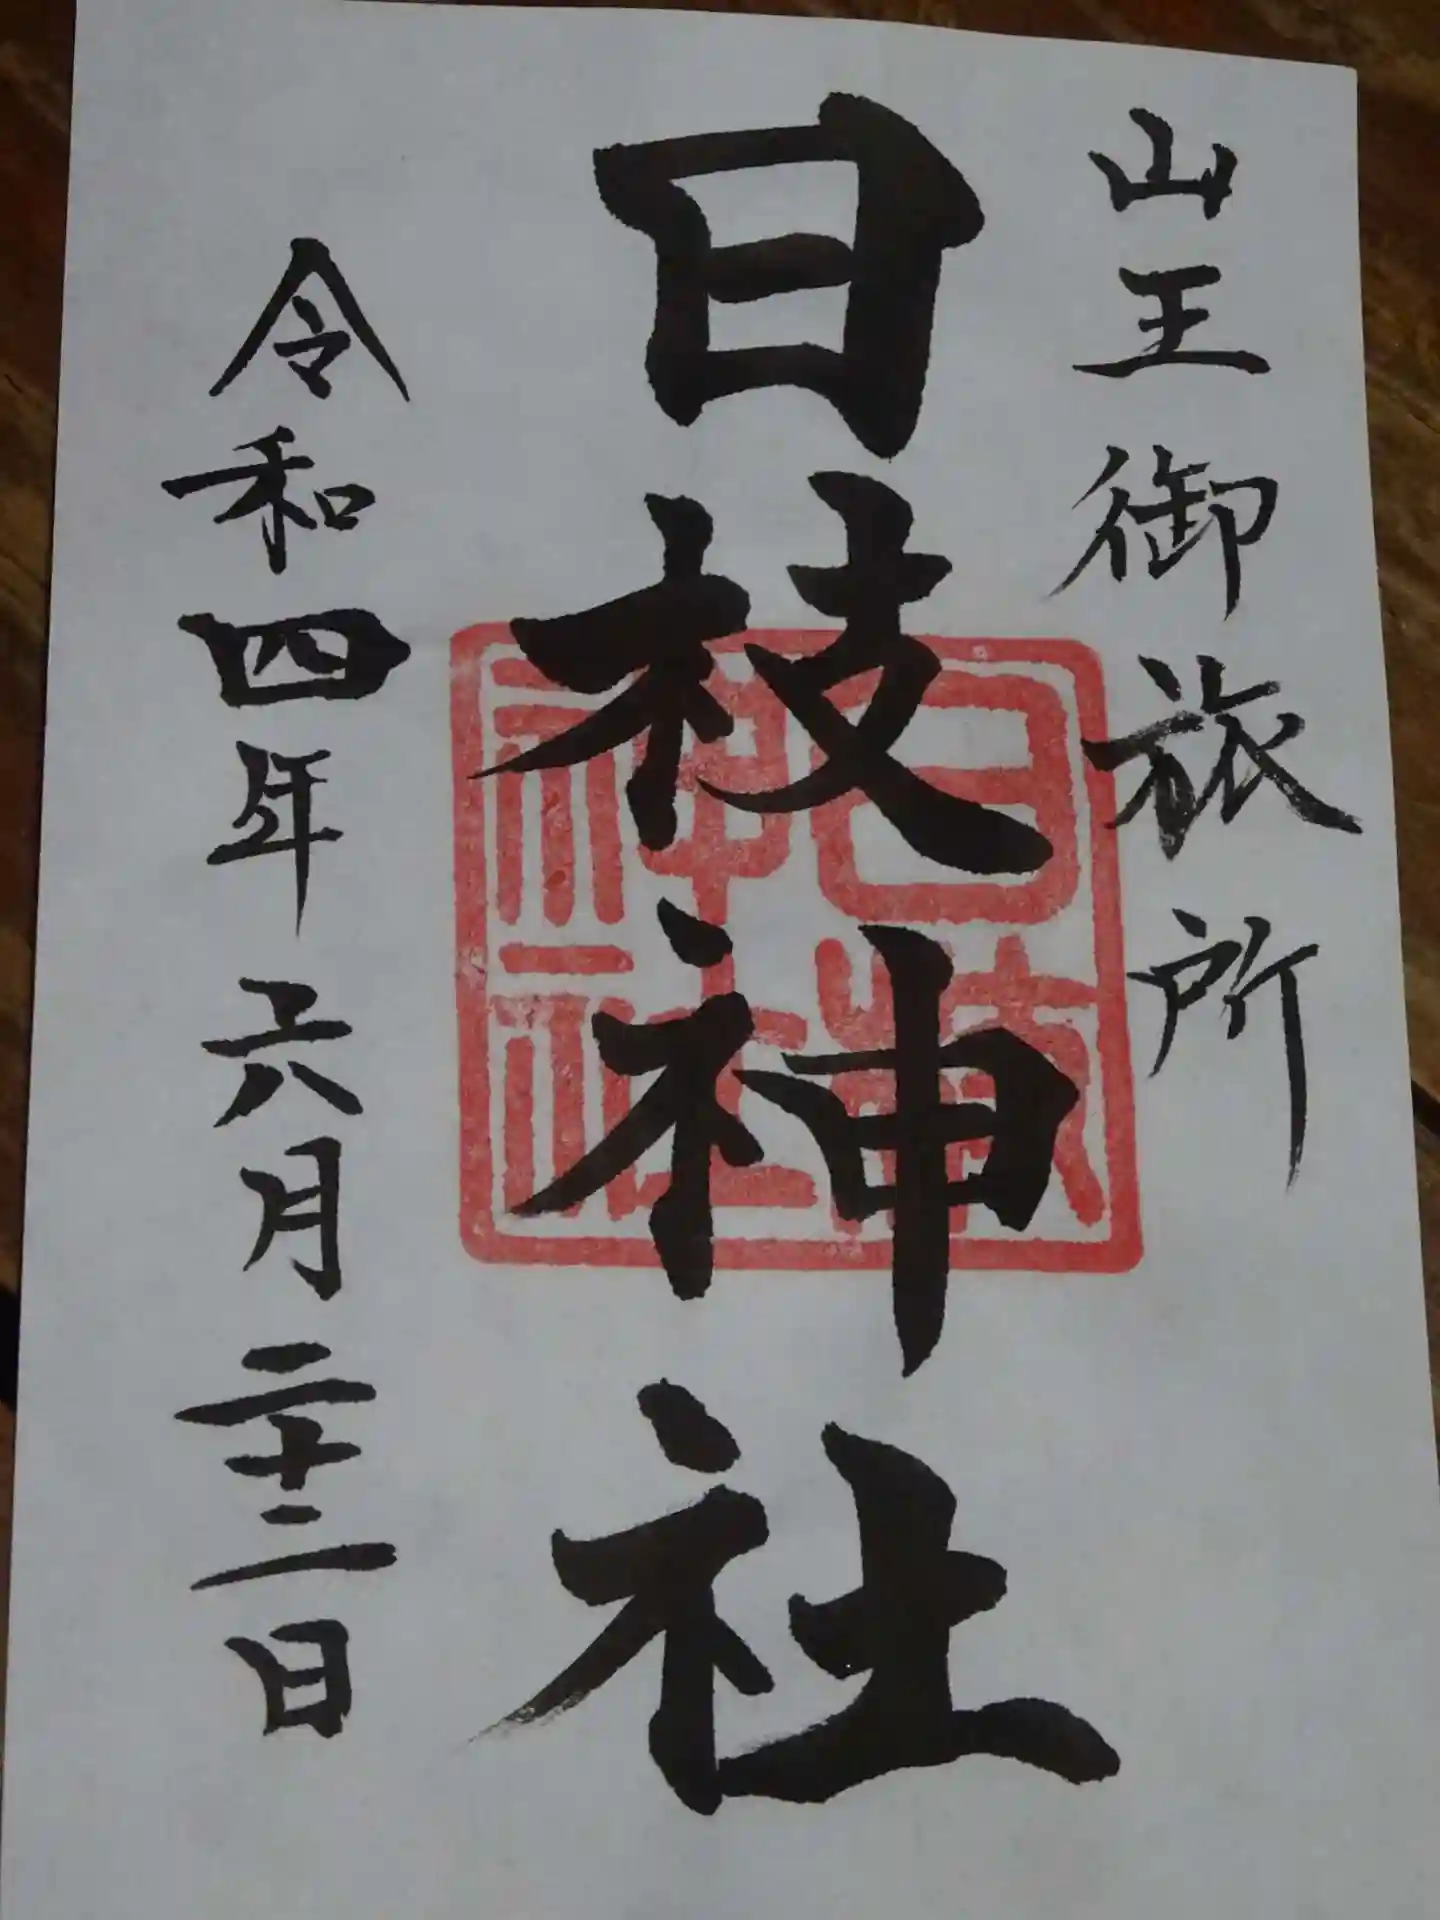 山王御旅所
日枝神社
日枝神社
令和四年六月二十二日